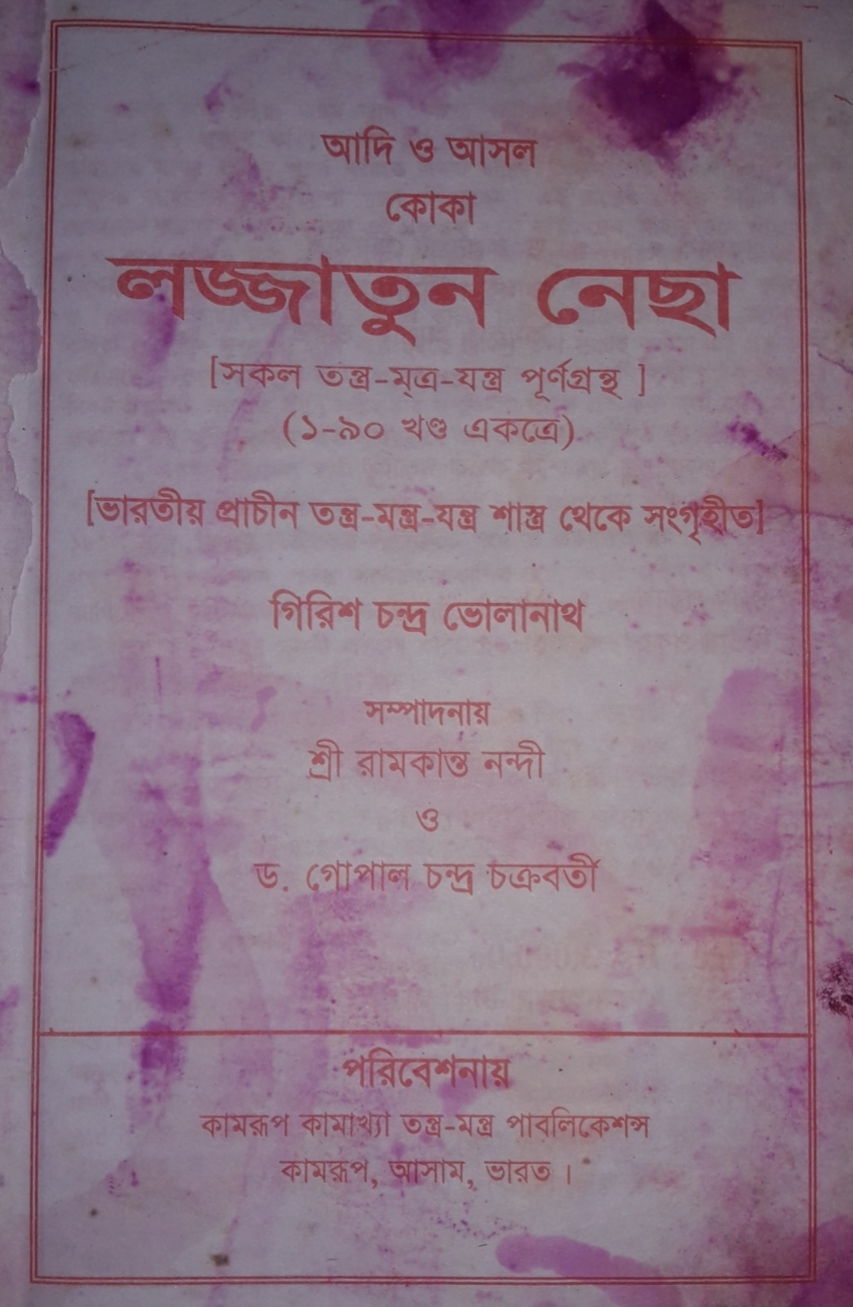 আদি ও আসল
কোকা
লজ্জাতুন নেছা
[সকল তন্ত্র-মূত্র-যন্ত্র পূর্ণগ্রন্থ ]
(১-৯০ খণ্ড একত্রে)
[ভারতীয় প্রাচীন তন্ত্র-মন্ত্র-যন্ত্র শাস্ত্র থেকে সংগৃহীত]
গিরিশ চন্দ্র ভোলানাথ
সম্পাদনায়
শ্রী রামকান্ত নন্দী
ও
ড. গোপাল চন্দ্র চক্রবর্তী
পরিবেশনায়
কামরূপ কামাখ্যা তন্ত্র-মন্ত্র পাবলিকেশন্স
কামরূপ, আসাম, ভারত ।